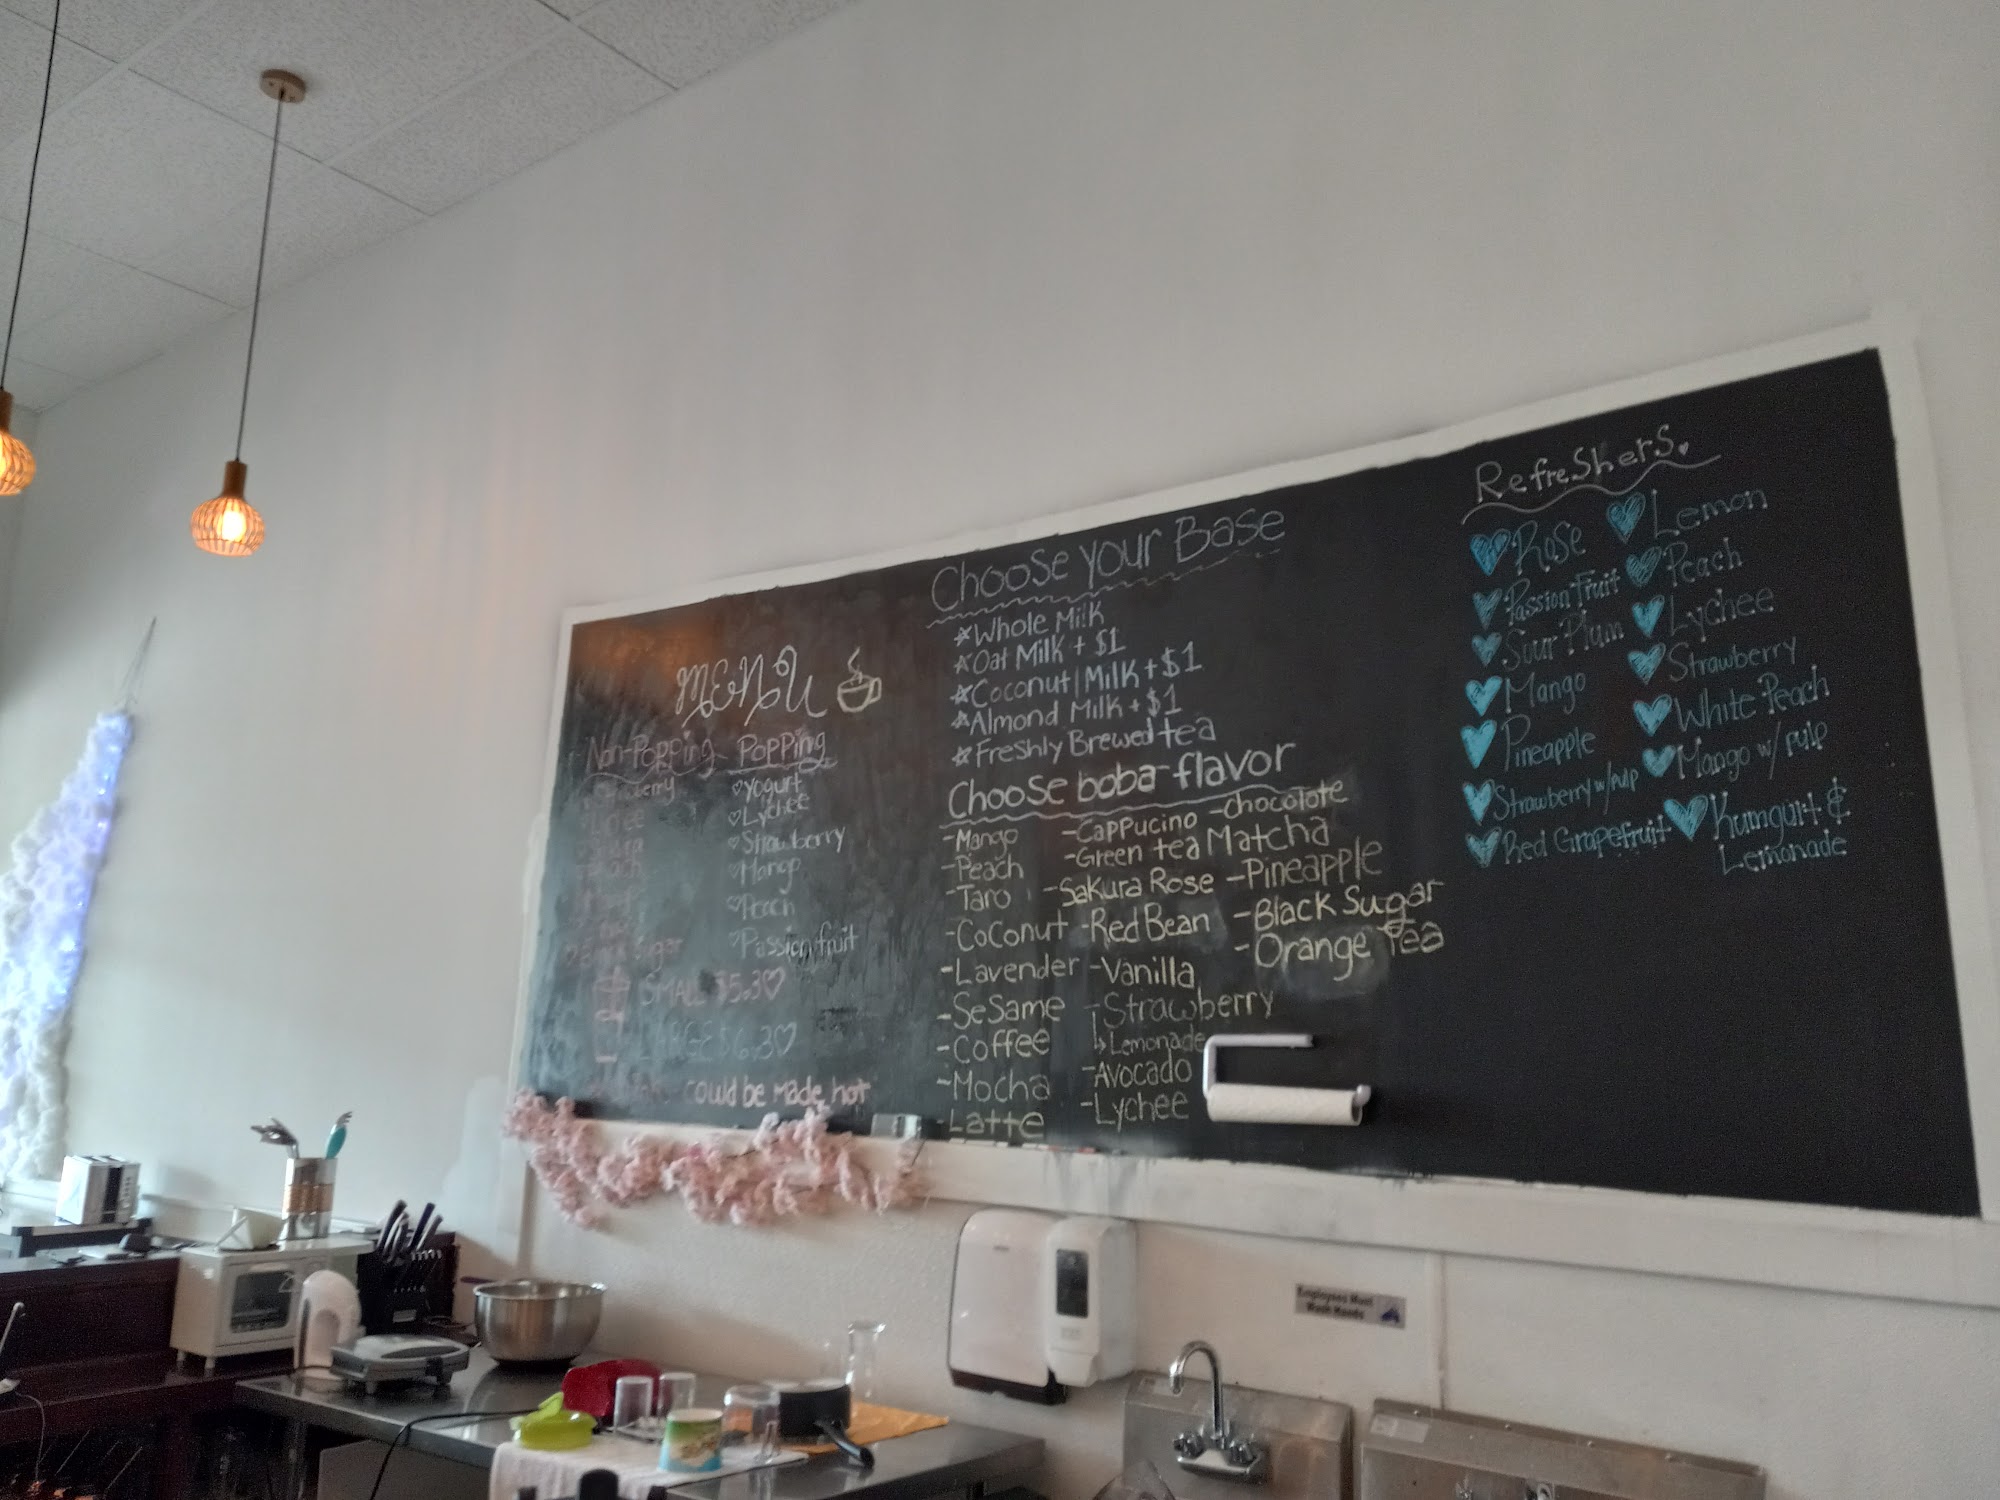 MENU
Non-Popping Popping
Strawberry
Lychee
Peach
Black Sugar
Yogurt
Lychee
Strawberry
Mango
Peach
Passion fruit
SMALL $5.3
LARGE $6.3
could be made hot
Choose your Base
Whole Milk
Oat Milk + $1
Coconut Milk + $1
Almond Milk + $1
Freshly Brewed tea
Choose boba flavor
-Mango
-Peach
-Taro
-Coconut
-Lavender
-Sesame
-Coffee
-Mocha
-Latte
-Cappucino
-Green tea Matcha
-Sakura Rose
-Red Bean
-Vanilla
-Strawberry
Lemonade
-Avocado
-Lychee
-chocolote
-Pineapple
-Black Sugar
-Orange Tea
Refreshers
Rose
Passion Fruit
Sour Plum
Mango
Pineapple
Strawberry w/pulp
Red Grapefruit
Lemon
Peach
Lychee
Strawberry
White Peach
Mango w/ pulp
Kumquat &
Lemonade
Employees Must
Wash Hands